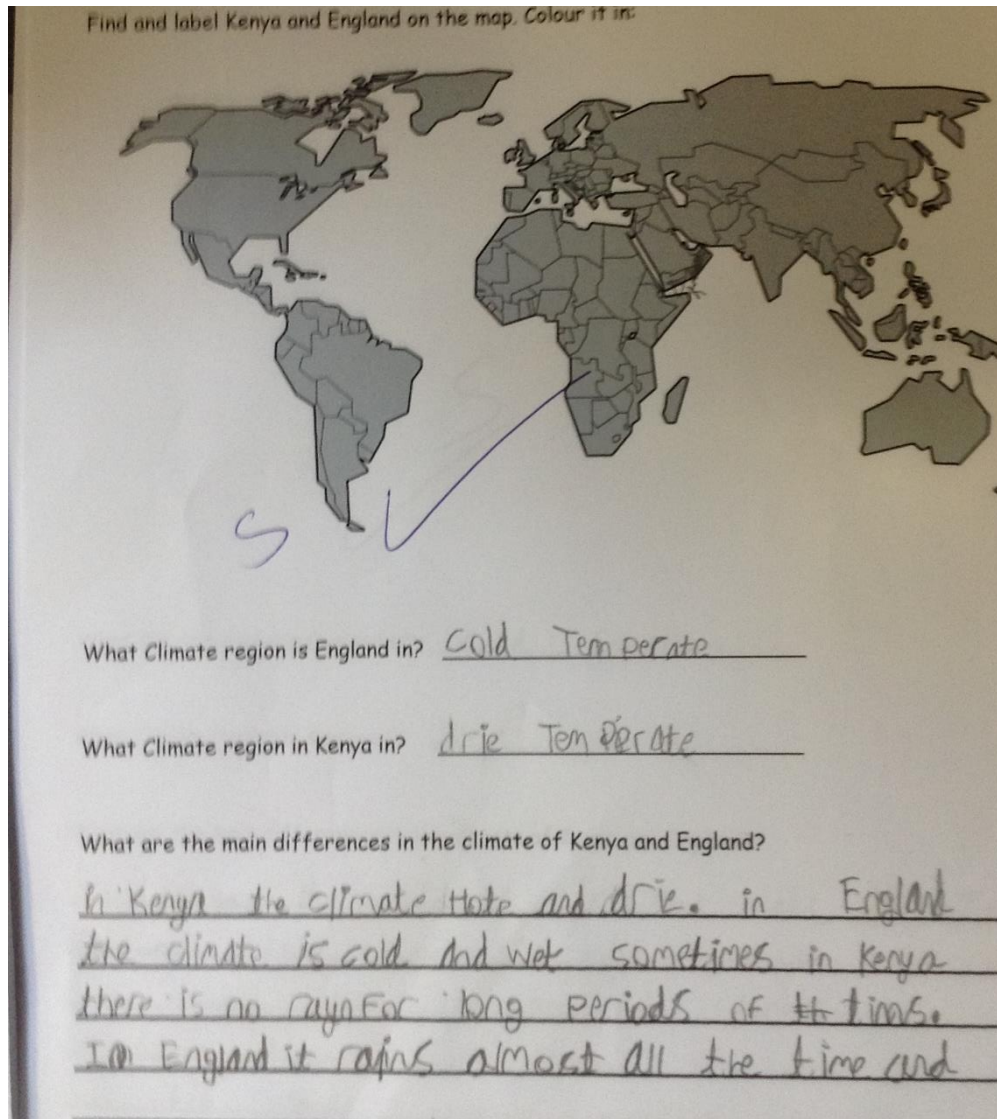 Find and label Kenya and England on the map. Colour it in:
S
What Climate region is England in? Cold Temperate
What Climate region in Kenya in? drie Temperate
What are the main differences in the climate of Kenya and England?
In Kenya the climate Hote and drie. in England
the climate is cold and wet sometimes in Kenya
there is no rayn For long periods of tims.
In England it rains almost all the time and